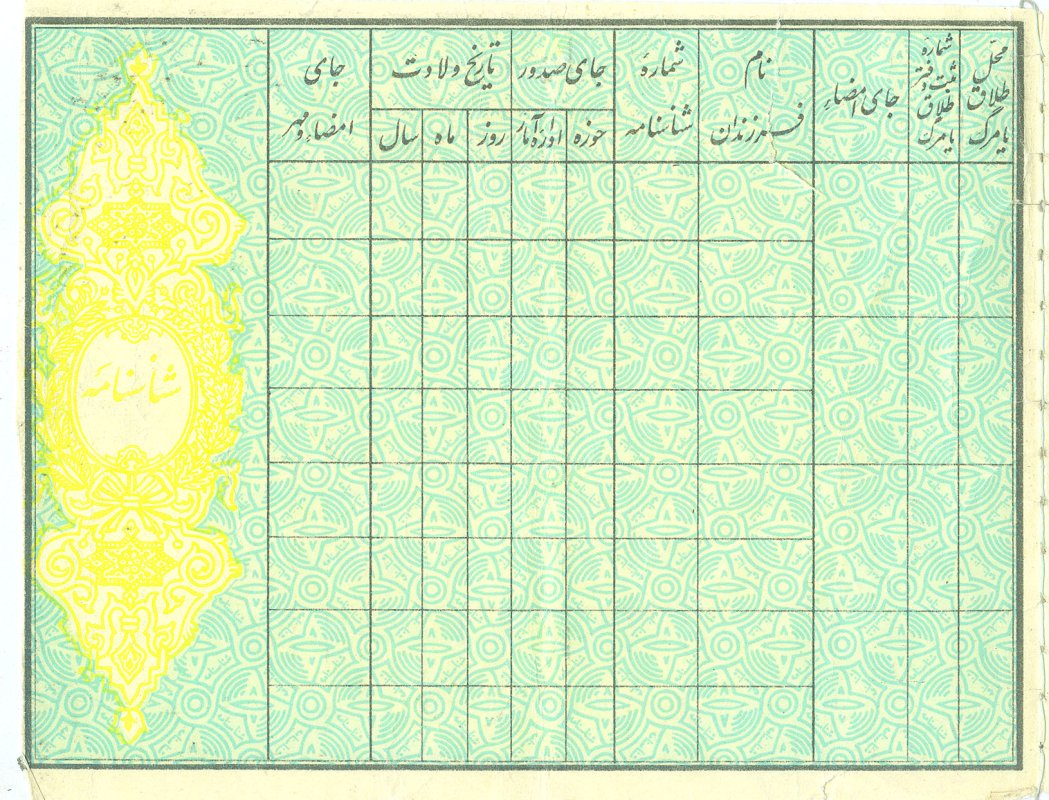 محلّ طلاق یا مرگ
شمارهٔ ثبت دفتر طلاق یا مرگ
جای امضاء
نام فرزندان
شمارهٔ شناسنامه
جای صدور
حوزه
ادارهٔ آمار
تاریخ ولادت
روز
ماه
سال
جای امضاء و مهر
شناسنامه